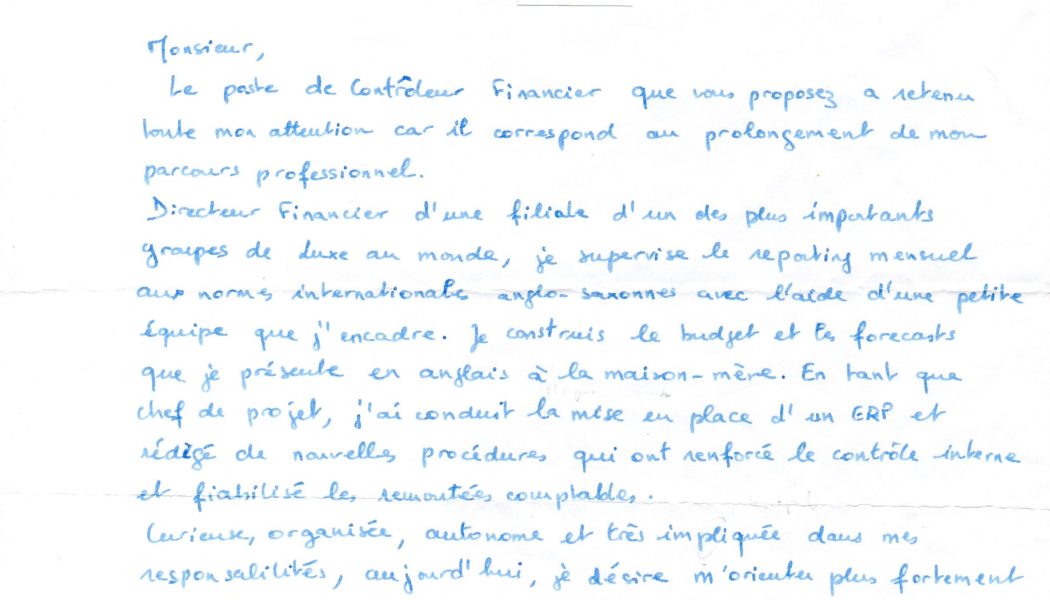 Monsieur,
Le poste de Contrôleur Financier que vous proposez a retenu
toute mon attention car il correspond au prolongement de mon
parcours professionnel.
Directeur Financier d'une filiale d'un des plus importants
groupes de luxe au monde, je supervise le reporting mensuel
aux normes internationales anglo-saxonnes avec l'aide d'une petite
équipe que j'encadre. Je construis le budget et les forecasts
que je présente en anglais à la maison-mère. En tant que
chef de projet, j'ai conduit la mise en place d'un ERP et
rédigé de nouvelles procédures qui ont renforcé le contrôle interne
et fiabilisé les remontées comptables.
Curieuse, organisée, autonome et très impliquée dans mes
responsalilités, aujourd'hui, je désire m'orienter plus fortement